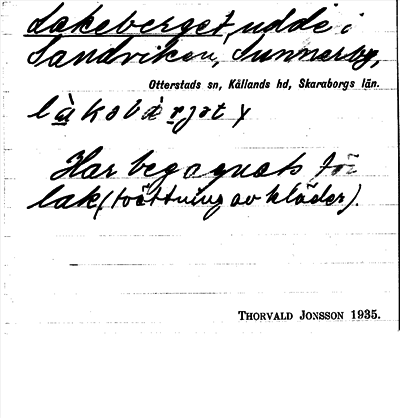 Lakeberget, udde i
Sandviken, Sunnerby,
Otterstads sn, Kållands hd, Skaraborgs län.
Har begagnats för
lak (tvättning av kläder).
THORVALD JONSSON 1935.